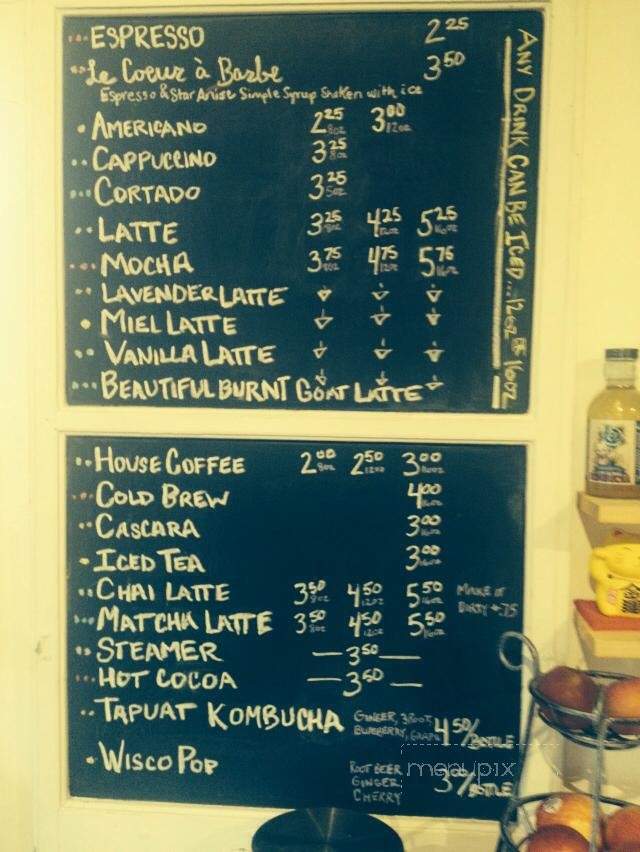 ESPRESSO 2 25
Le Coeur à Barbe 3 50
Espresso & Star Anise Simple Syrup Shaken with ice
AMERICANO 2 25 8oz 3 00 12oz
CAPPUCCINO 3 25 8oz
CORTADO 3 25 5oz
LATTE 3 25 8oz 4 25 12oz 5 25 16oz
MOCHA 3 75 8oz 4 75 12oz 5 75 16oz
LAVENDER LATTE
MIEL LATTE
VANILLA LATTE
BEAUTIFUL BURNT GOAT LATTE
ANY DRINK CAN BE ICED... 12oz OR 16oz
HOUSE COFFEE 2 00 8oz 2 50 12oz 3 00 16oz
COLD BREW 4 00 16oz
CASCARA 3 00 16oz
ICED TEA 3 00 16oz
CHAI LATTE 3 50 8oz 4 50 12oz 5 50 16oz MAKE IT
DIRTY +.75
MATCHA LATTE 3 50 8oz 4 50 12oz 5 50 16oz
STEAMER — 3 50 —
HOT COCOA — 3 50 —
TAPUAT KOMBUCHA GINGER, 3 ROOT,
BLUEBERRY, GRAPE 4 50/BOTTLE
WISCO POP ROOT BEER
GINGER 3 00/BOTTLE
CHERRY
menupix